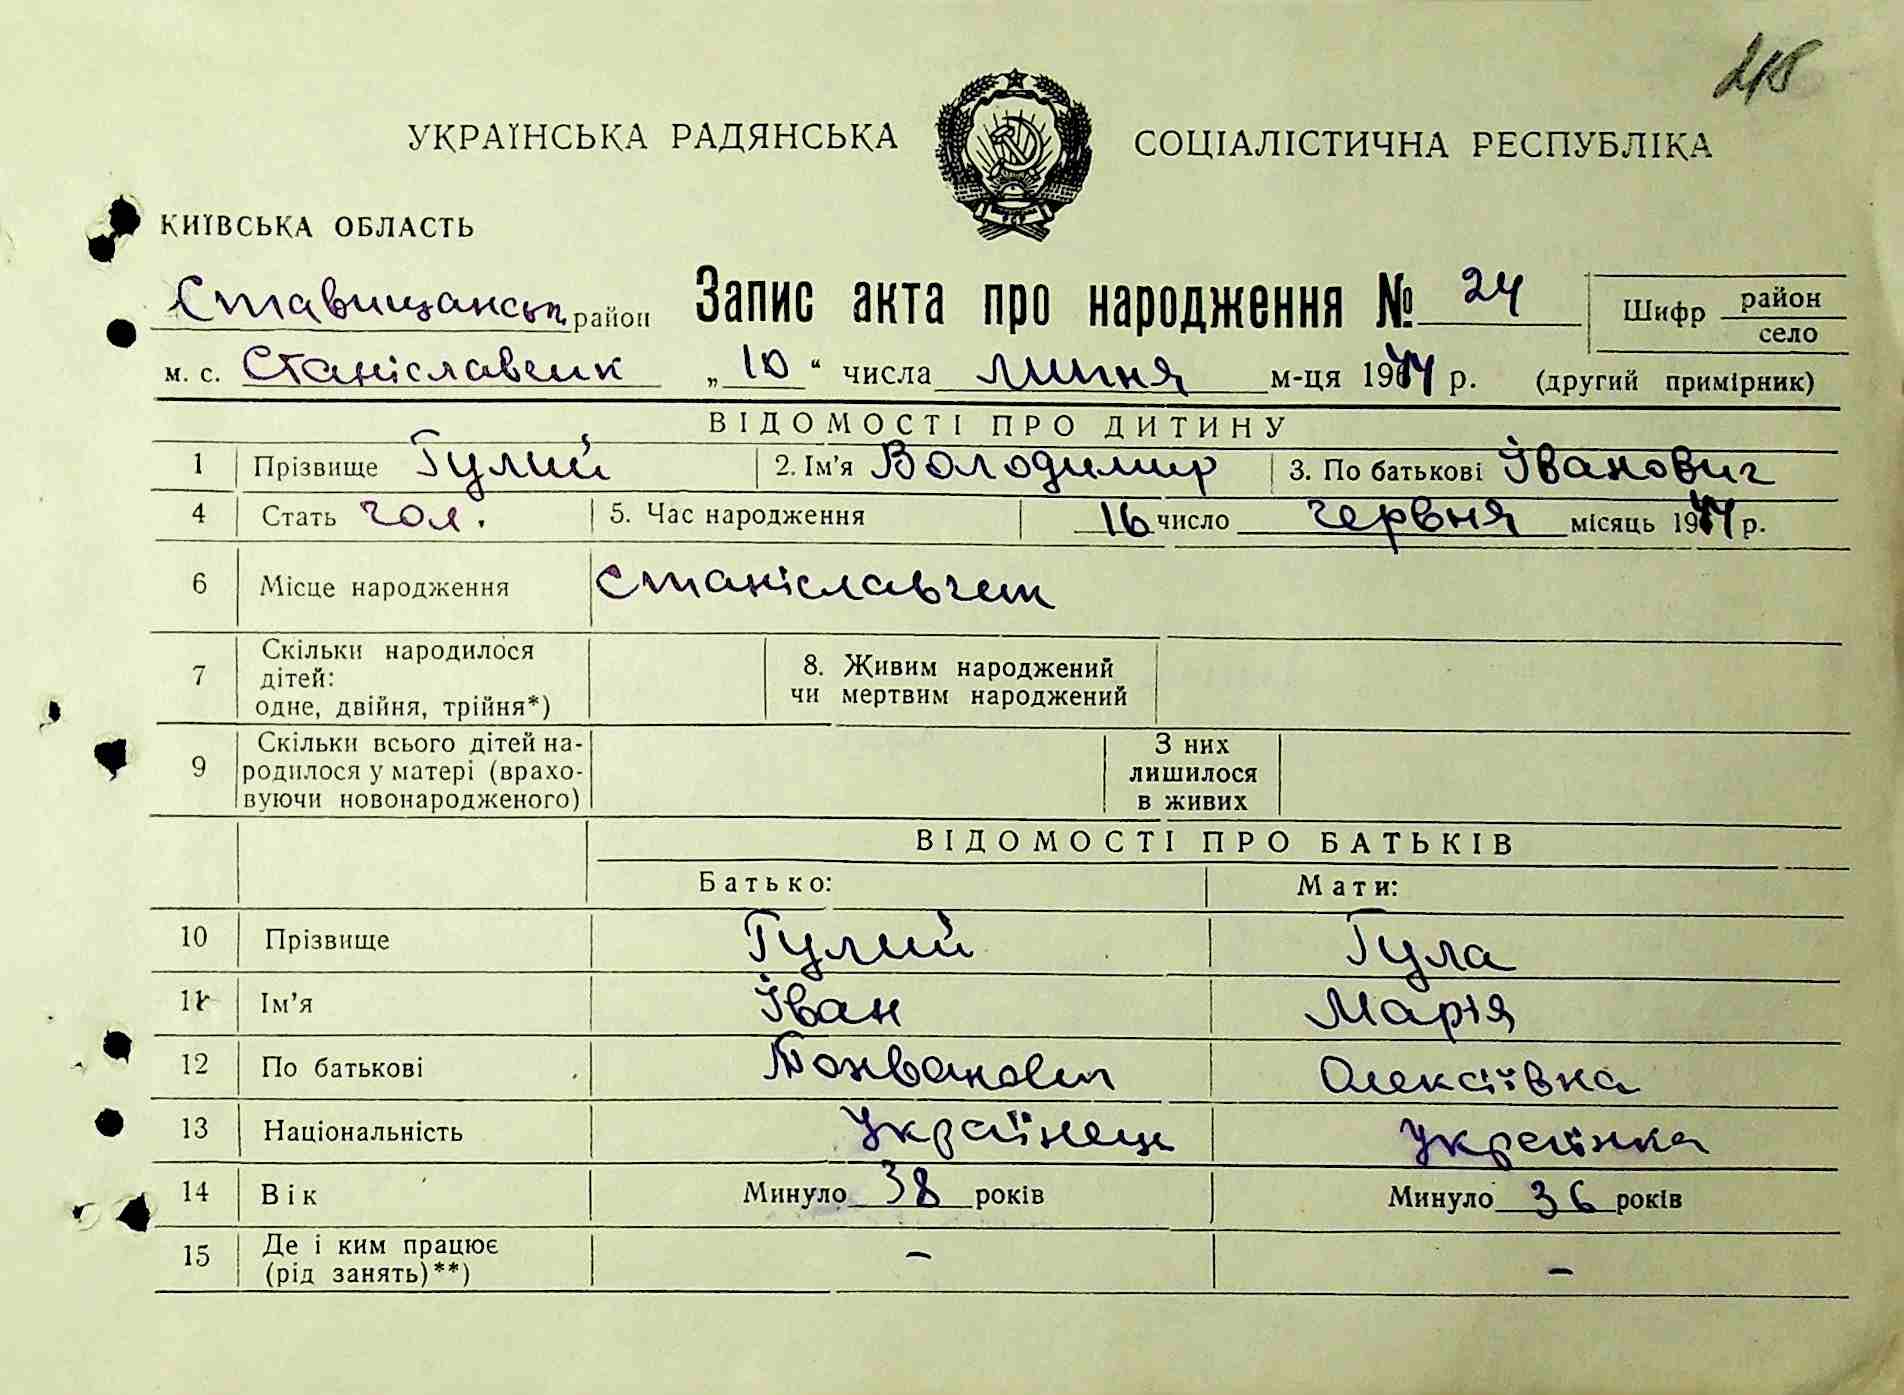 218
УКРАЇНСЬКА РАДЯНСЬКА СОЦІАЛІСТИЧНА РЕСПУБЛІКА
КИЇВСЬКА ОБЛАСТЬ
Ставищанськ район Запис акта про народження № 24 Шифр район село
м. с. Станіславчик „10“ числа липня м-ця 1944 р. (другий примірник)
ВІДОМОСТІ ПРО ДИТИНУ
1 Прізвище Гулий 2. Ім'я Володимир 3. По батькові Іванович
4 Стать чол. 5. Час народження 16 число червня місяць 1944 р.
6 Місце народження Станіславчик
7 Скільки народилося дітей: одне, двійня, трійня*) 8. Живим народжений чи мертвим народжений
9 Скільки всього дітей народилося у матері (враховуючи новонародженого) З них лишилося в живих
ВІДОМОСТІ ПРО БАТЬКІВ
Батько: Мати:
10 Прізвище Гулий Гула
11 Ім'я Іван Марія
12 По батькові Олексіївна
13 Національність Українець Українка
14 Вік Минуло 38 років Минуло 36 років
15 Де і ким працює (рід занять)**) – –